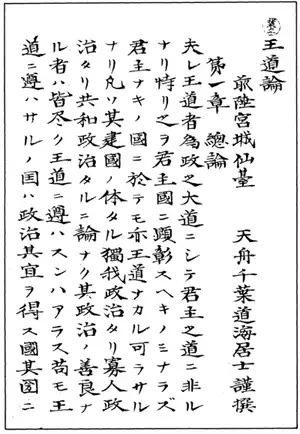 王道論
前陸宮城仙臺 天舟千葉道海居士謹撰
第一章 總論
夫レ王道者為政之大道ニシテ君主之道ニ非ル
ナリ特リ之ヲ君主國ニ顕彰スヘキノミナラズ
君主ナキノ國ニ於テモ亦王道ナカル可ラサル
ナリ凡ソ其建國ノ体タル獨裁政治タリ寡人政
治タリ共和政治タルニ論ナク其政治ノ善良ナ
ル者ハ皆尽ク王道ニ遵ハスンハアラス苟モ王
道ニ遵ハサルノ国ハ政治其宜ヲ得ス國其国ニ